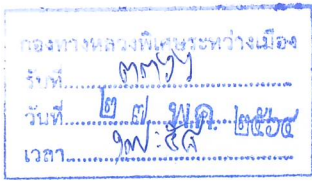 กองทางหลวงพิเศษระหว่างเมือง
รับที่
วันที่ ๒ ๗ พ.ค. ๒๕๖๔
เวลา